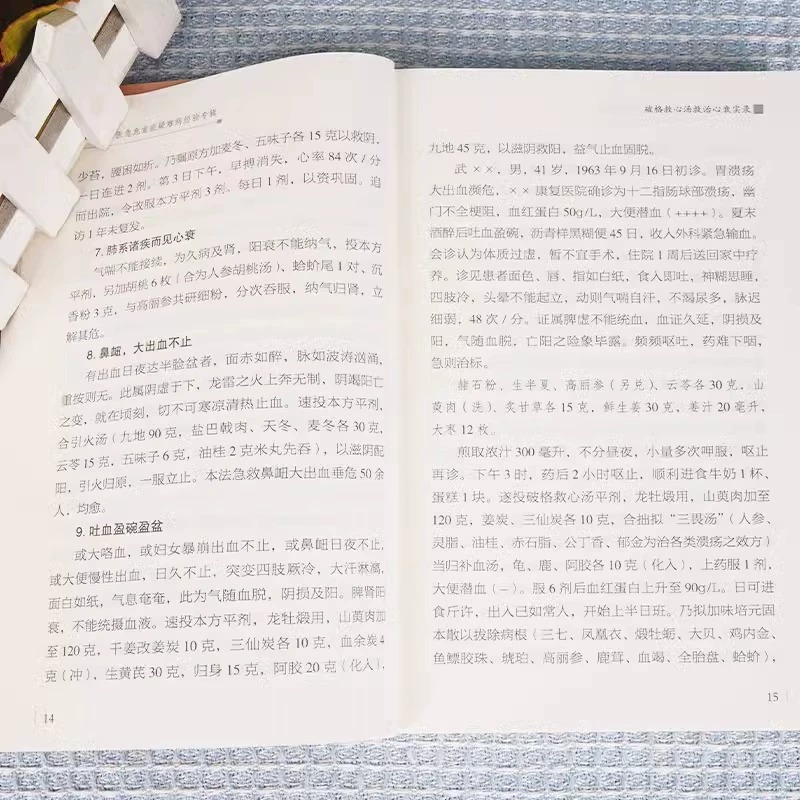 急危重症疑难病经验专辑
少苔，腰困如折。乃嘱原方加麦冬、五味子各 15 克以救阴，
一日连进 2 剂。第 3 日下午，早搏消失，心率 84 次／分
而出院，令改服本方平剂 3 剂，每日 1 剂，以资巩固。追
访 1 年未复发。
7. 肺系诸疾而见心衰
气喘不能接续，为久病及肾，阳衰不能纳气，投本方
平剂，另加胡桃 6 枚（合为人参胡桃汤）、蛤蚧尾 1 对、沉
香粉 3 克，与高丽参共研细粉，分次吞服，纳气归肾，立
解其危。
8. 鼻衄，大出血不止
有出血日夜达半脸盆者，面赤如醉，脉如波涛汹涌，
重按则无。此属阴虚于下，龙雷之火上奔无制，阴竭阳亡
之变，就在顷刻，切不可寒凉清热止血。速投本方平剂，
合引火汤（九地 90 克，盐巴戟肉、天冬、麦冬各 30 克，
云苓 15 克，五味子 6 克，油桂 2 克米丸先吞），以滋阴配
阳，引火归原，一服立止。本法急救鼻衄大出血垂危 50 余
人，均愈。
9. 吐血盈碗盈盆
或大咯血，或妇女暴崩出血不止，或鼻衄日夜不止，
或大便慢性出血，日久不止，突变四肢厥冷，大汗淋漓，
面白如纸，气息奄奄，此为气随血脱，阴损及阳。脾肾阳
衰，不能统摄血液。速投本方平剂，龙牡煅用，山萸肉加
至 120 克，干姜改姜炭 10 克，三仙炭各 10 克，血余炭 4
克（冲），生黄芪 30 克，归身 15 克，阿胶 20 克（化入），
14
破格救心汤救治心衰实录
九地 45 克，以滋阴救阳，益气止血固脱。
武 ××，男，41 岁，1963 年 9 月 16 日初诊。胃溃疡
大出血濒危，×× 康复医院确诊为十二指肠球部溃疡，幽
门不全梗阻，血红蛋白 50g/L，大便潜血（++++）。夏末
酒醉后吐血盈碗，沥青样黑糊便 45 日，收入外科紧急输血。
会诊认为体质过虚，暂不宜手术，住院 1 周后送回家中疗
养。诊见患者面色、唇、指如白纸，食入即吐，神糊思睡，
四肢冷，头晕不能起立，动则气喘自汗，不渴尿多，脉迟
细弱，48 次／分。证属脾虚不能统血，血证久延，阴损及
阳，气随血脱，亡阳之险象毕露。频频呕吐，药难下咽，
急则治标。
赭石粉、生半夏、高丽参（另兑）、云苓各 30 克，山
萸肉（洗）、炙甘草各 15 克，鲜生姜 30 克，姜汁 20 毫升，
大枣 12 枚。
煎取浓汁 300 毫升，不分昼夜，小量多次呷服，呕止
再诊。下午 3 时，药后 2 小时呕止，顺利进食牛奶 1 杯、
蛋糕 1 块。遂投破格救心汤平剂，龙牡煅用，山萸肉加至
120 克，姜炭、三仙炭各 10 克，合拙拟“三畏汤”（人参、
灵脂、油桂、赤石脂、公丁香、郁金为治各类溃疡之效方）
当归补血汤，龟、鹿、阿胶各 10 克（化入），上药服 1 剂，
大便潜血（-）。服 6 剂后血红蛋白上升至 90g/L。日可进
食斤许，出入已如常人，开始上半日班。乃拟加味培元固
本散以拔除病根（三七、凤凰衣、煅牡蛎、大贝、鸡内金、
鱼鳔胶珠、琥珀、高丽参、鹿茸、血竭、全胎盘、蛤蚧），
15